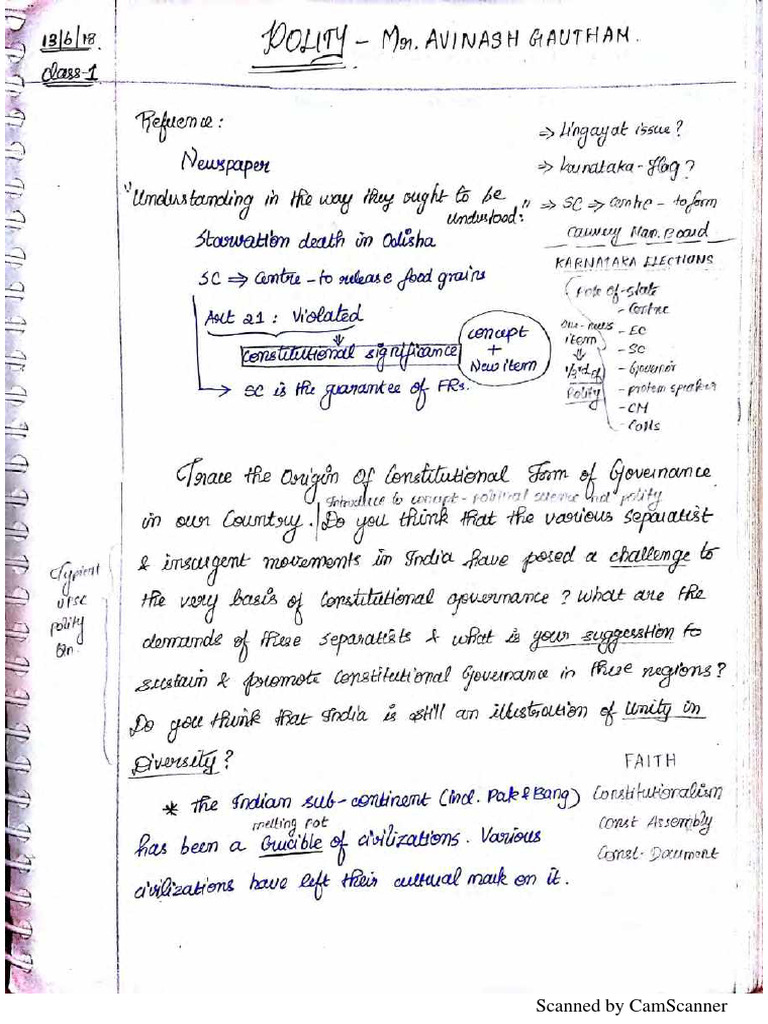 13/6/18.
Class-1
POLITY - Mr. AVINASH GAUTHAM.
Refuence:
Newspaper
"Understanding in the way they ought to be
understood."
Starvation death in Odisha
SC ⇒ Centre - to release food grains
Art 21 : Violated
Constitutional significance
concept
+
New item
→ SC is the guarantee of FRs.
⇒ Lingayat issue?
⇒ Karnataka - flag?
⇒ SC ⇒ Centre - to form
Cauvery Man. Board
KARNATAKA ELECTIONS
Role of - State
- Centre
- EC
- SC
- Governor
- protem speaker
- CM
one-news
item
⇓
1/3rd of
Polity
Trace the Origin Of Constitutional Form of Governance
Introduce to concept - political science not polity
in our Country. Do you think that the various separatist
& insurgent movements in India have posed a challenge to
the very basis of Constitutional governance? What are the
demands of these separatists & what is your suggession to
sustain & promote Constitutional Governance in these regions?
Do you think that India is still an illustration of Unity in
Diversity?
Typical
UPSC
polity
Qn.
* The Indian sub-continent (incl. Pak & Bang)
melting pot
has been a Crucible of civilizations. Various
civilizations have left their cultural mark on it.
FAITH
Constitutionalism
Const Assembly
Const. Document
Scanned by CamScanner